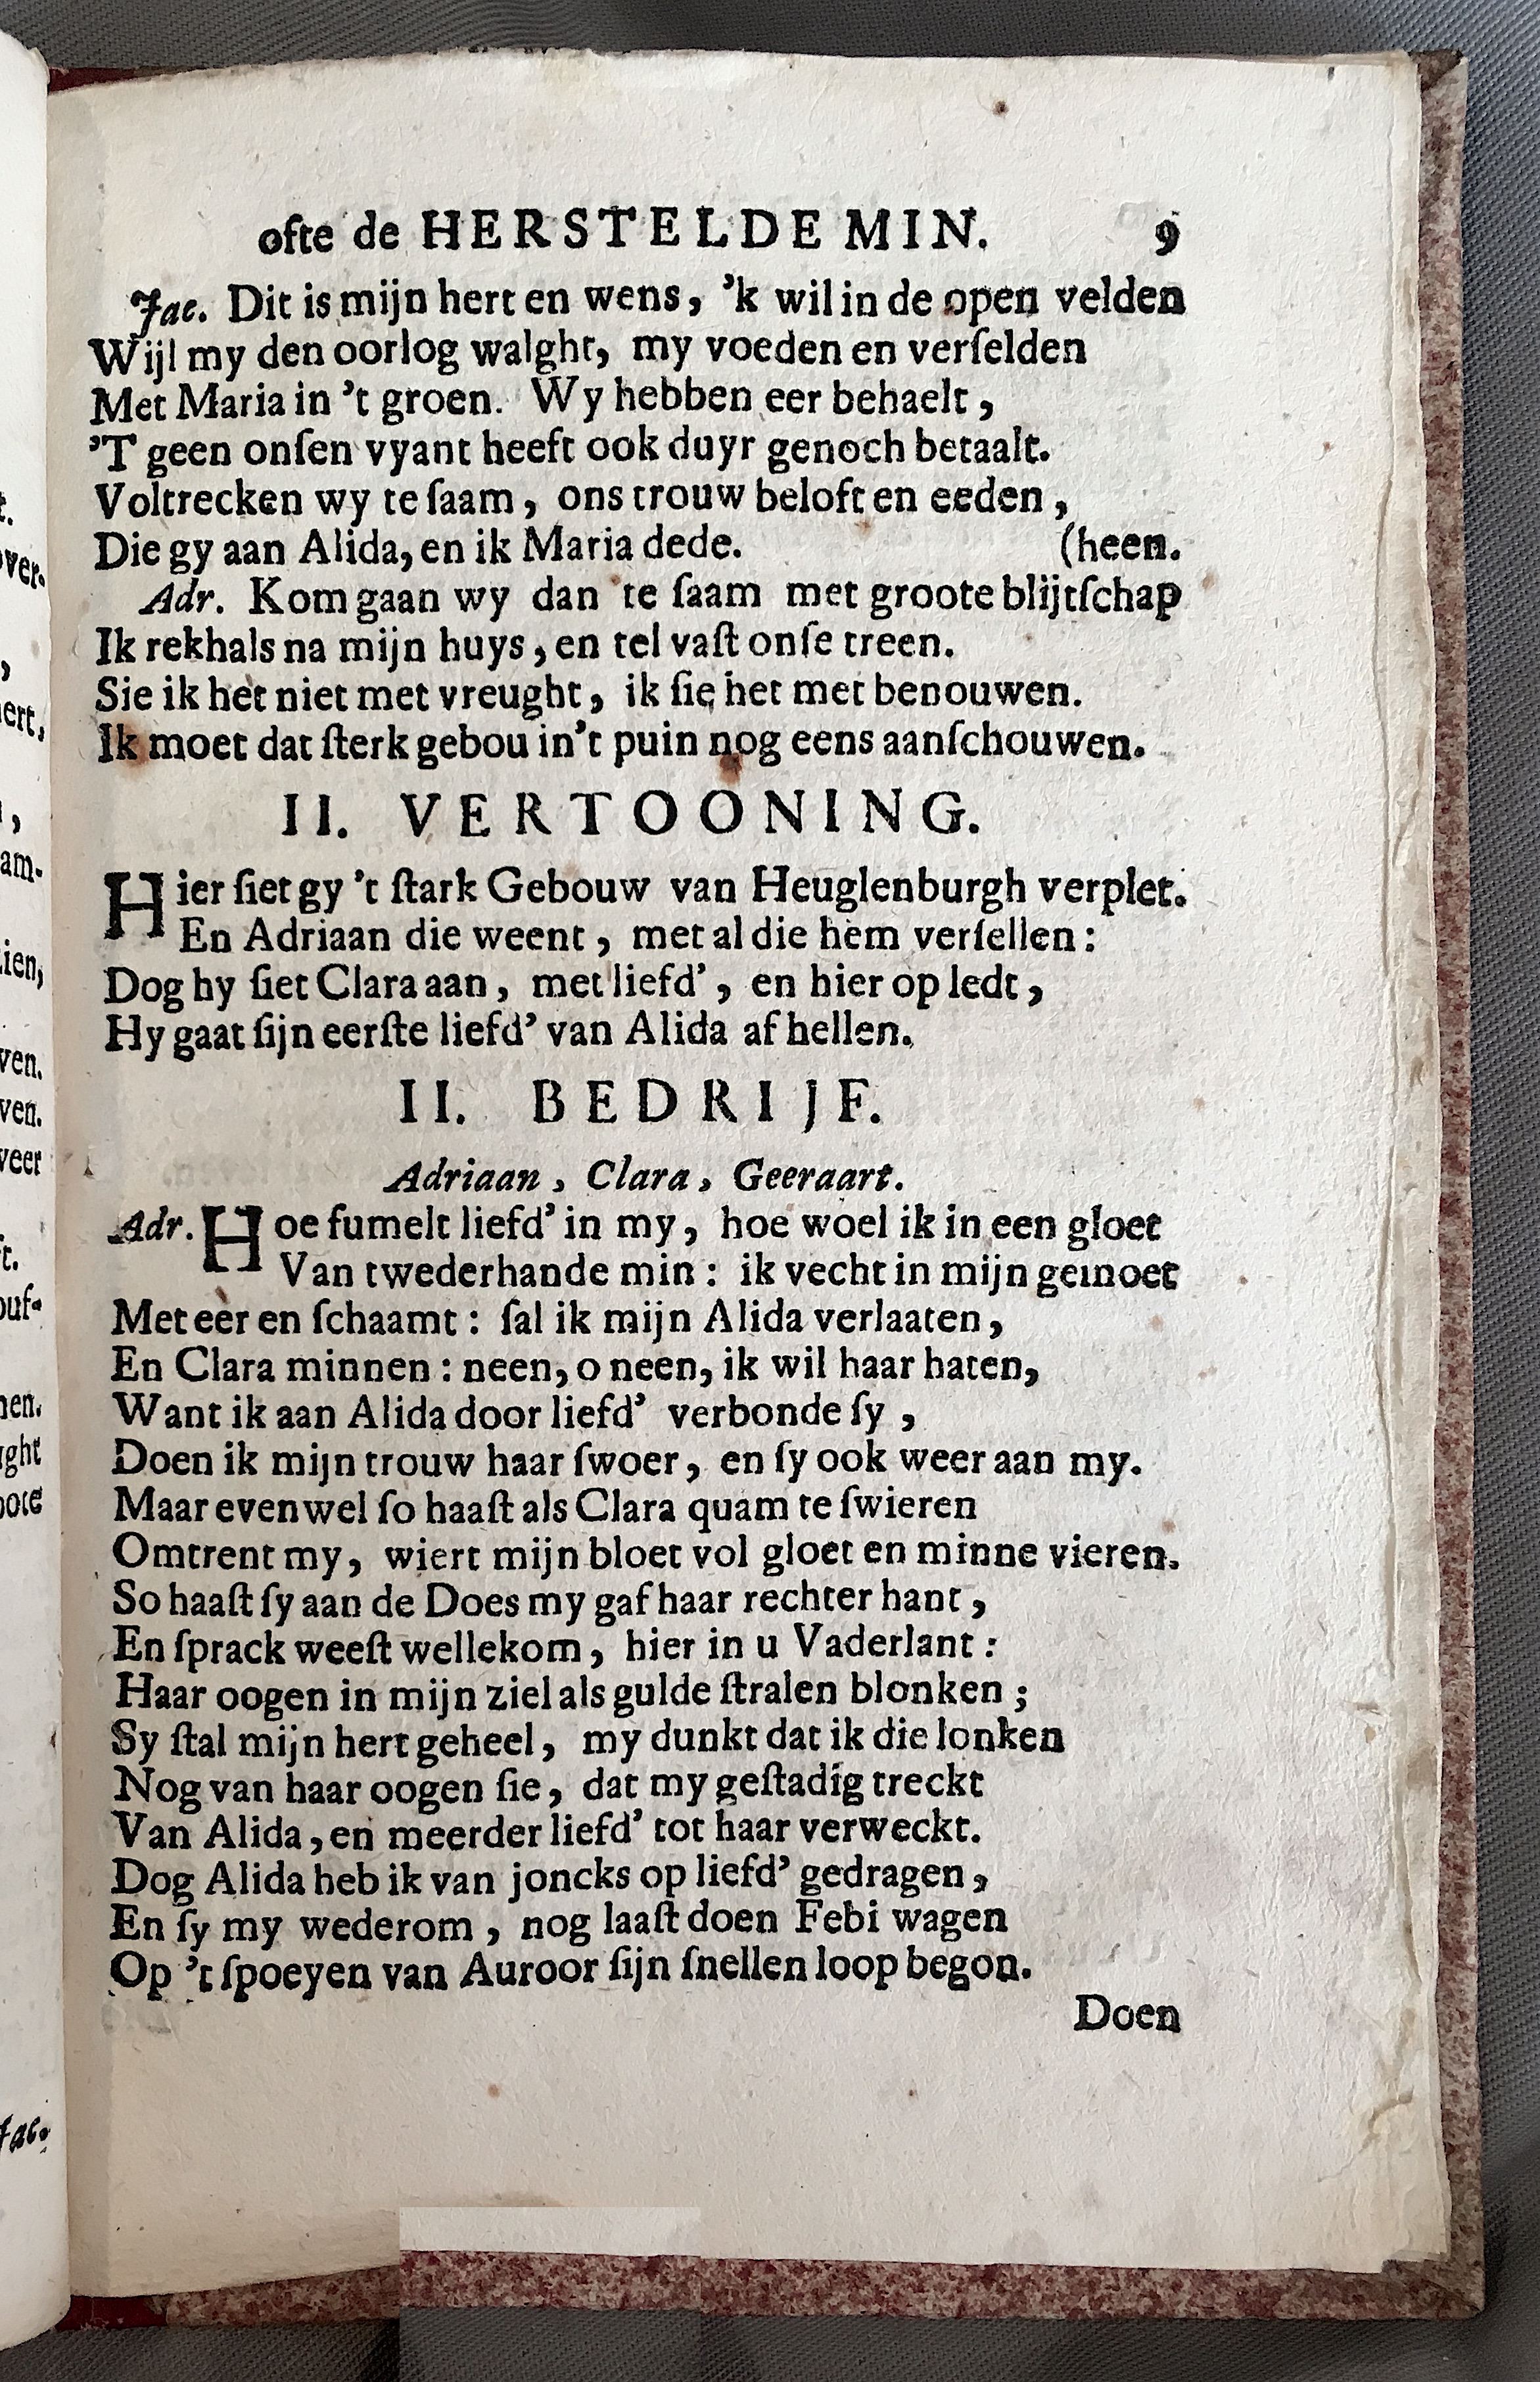 ofte de HERSTELDE MIN. 9
Jac. Dit is mijn hert en wens, ’k wil in de open velden
Wijl my den oorlog walght, my voeden en verſelden
Met Maria in ’t groen. Wy hebben eer behaelt,
’T geen onſen vyant heeft ook duyr genoch betaalt.
Voltrecken wy te ſaam, ons trouw beloft en eeden,
Die gy aan Alida, en ik Maria dede. (heen.
Adr. Kom gaan wy dan te ſaam met groote blijtſchap
Ik rekhals na mijn huys, en tel vaſt onſe treen.
Sie ik het niet met vreught, ik ſie het met benouwen.
Ik moet dat ſterk gebou in’t puin nog eens aanſchouwen.
II. VERTOONING.
Hier ſiet gy ’t ſtark Gebouw van Heuglenburgh verplet.
En Adriaan die weent, met al die hem verſellen:
Dog hy ſiet Clara aan, met liefd’, en hier op ledt,
Hy gaat ſijn eerſte liefd’ van Alida af hellen.
II. BEDRIJF.
Adriaan, Clara, Geeraart.
Adr. Hoe fumelt liefd’ in my, hoe woel ik in een gloet
Van twederhande min: ik vecht in mijn gemoet
Met eer en ſchaamt: ſal ik mijn Alida verlaaten,
En Clara minnen: neen, o neen, ik wil haar haten,
Want ik aan Alida door liefd’ verbonde ſy,
Doen ik mijn trouw haar ſwoer, en ſy ook weer aan my.
Maar evenwel ſo haaſt als Clara quam te ſwieren
Omtrent my, wiert mijn bloet vol gloet en minne vieren.
So haaſt ſy aan de Does my gaf haar rechter hant,
En ſprack weeſt wellekom, hier in u Vaderlant:
Haar oogen in mijn ziel als gulde ſtralen blonken;
Sy ſtal mijn hert geheel, my dunkt dat ik die lonken
Nog van haar oogen ſie, dat my geſtadig treckt
Van Alida, en meerder liefd’ tot haar verweckt.
Dog Alida heb ik van joncks op liefd’ gedragen,
En ſy my wederom, nog laaſt doen Febi wagen
Op ’t ſpoeyen van Auroor ſijn ſnellen loop begon.
Doen